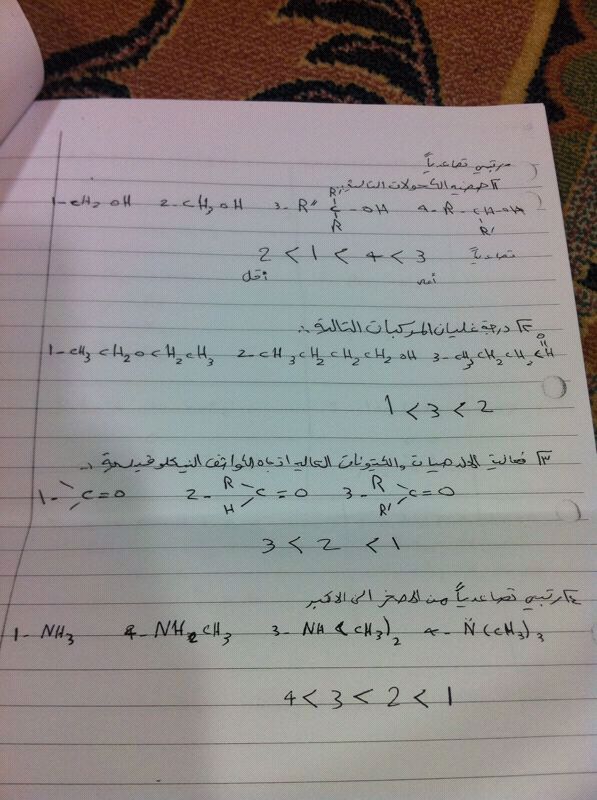 رتبي تصاعدياً
١- حمضية الكحولات التالية:
1- CH3 OH 2- CH3 OH 3- R'' - C - OH 4- R - CH-OH
R'
R
R'
تصاعدياً 2 < 1 < 4 < 3
أقل
٢- درجة غليان المركبات التالية:
1- CH3 CH2 O CH2 CH3 2- CH3 CH2 CH2 CH2 OH 3- CH3 CH2 CH2 CH
O
1 < 3 < 2
٣- فعالية الالدهيدات والكيتونات التالية اتجاه الكواشف النيكلوفيلية:
1- C=O 2- R H C=O 3- R R' C=O
3 < 2 < 1
٤- رتبي تصاعدياً من الاصغر الى الاكبر
1- NH3 2- NH2 CH3 3- NH (CH3)2 4- N̈ (CH3)3
4 < 3 < 2 < 1